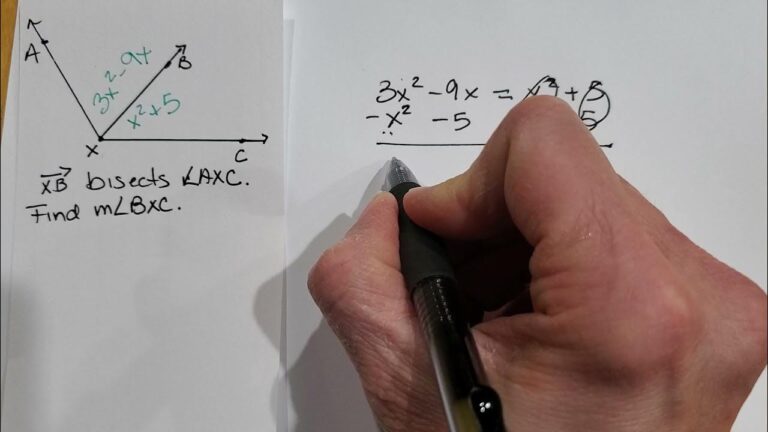 A
B
3x²-9x
x²+5
X
C
XB bisects ∠AXC.
Find m∠BXC.
3x²-9x = x²+5
-x² -5 5